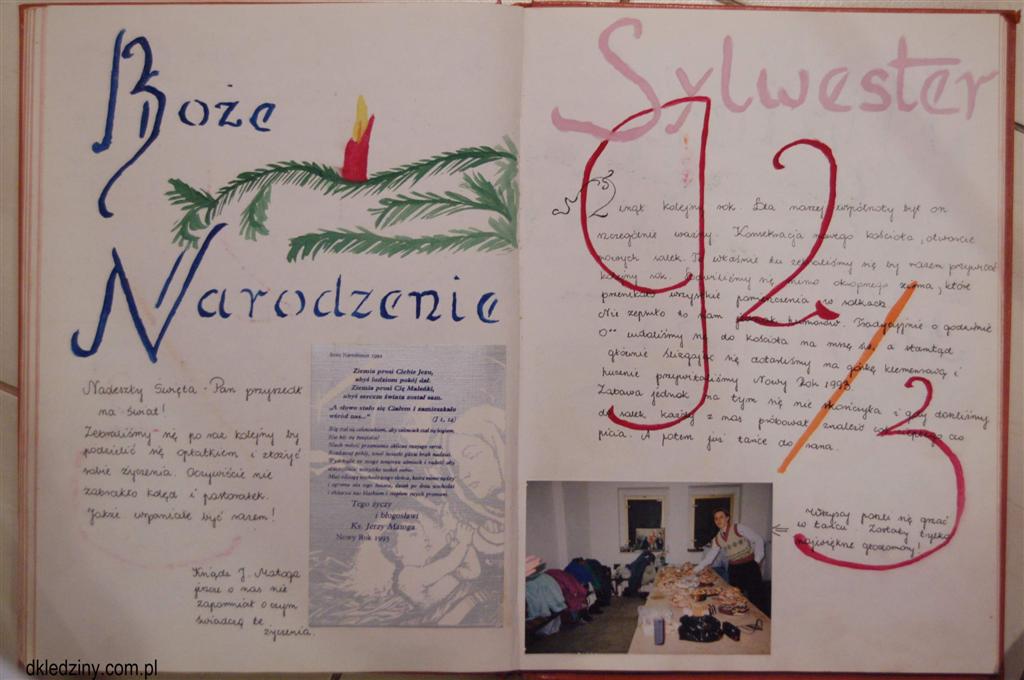 Boże
Narodzenie
Nadeszły Święta - Pan przyszedł
na świat!
Zebraliśmy się po raz kolejny by
podzielić się opłatkiem i złożyć
sobie życzenia. Oczywiście nie
zabrakło kolęd i pastorałek.
Jakże wspaniale być razem!
Ksiądz J. Matoga
jeszcze o nas nie
zapomniał o czym
świadczą te
życzenia.
Boże Narodzenie 1992
Ziemia prosi Ciebie Jezu,
abyś ludziom pokój dał.
Ziemia prosi Cię Maleńki,
abyś sercem świata został sam.
„A słowo stało się Ciałem i zamieszkało
wśród nas..."
(J 1, 14)
Tego życzy
i błogosławi
Ks. Jerzy Matoga
Nowy Rok 1993
Sylwester
92/3
Minął kolejny rok. Dla naszej wspólnoty był on
szczególnie ważny. Konsekracja nowego kościoła, otwarcie
nowych salek. Tu właśnie się zebraliśmy się by razem przywitać
kolejny rok. Bawiliśmy się mimo okropnego zimna, które
przenikało wszystkie pomieszczenia w salkach.
Nie zepsuło to nam jednak humorów. Tradycyjnie o godzinie
0⁰⁰ udaliśmy się do kościoła na mszę św. a stamtąd
głównie ślizgając się dotarliśmy na górkę klemensową i
hucznie przywitaliśmy Nowy Rok 1993.
Zabawa jednak na tym się nie skończyła i gdy dotarliśmy
do salek każdy z nas próbował znaleźć coś ciepłego do
picia. A potem już tańce do rana.
Wszyscy poszli się grzać
w tańcu. Zostały tylko
największe głodomory!
dkledziny.com.pl